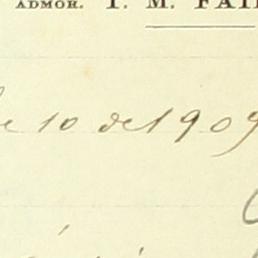 ADMOR. T. M. FAI
e 10 de 1909